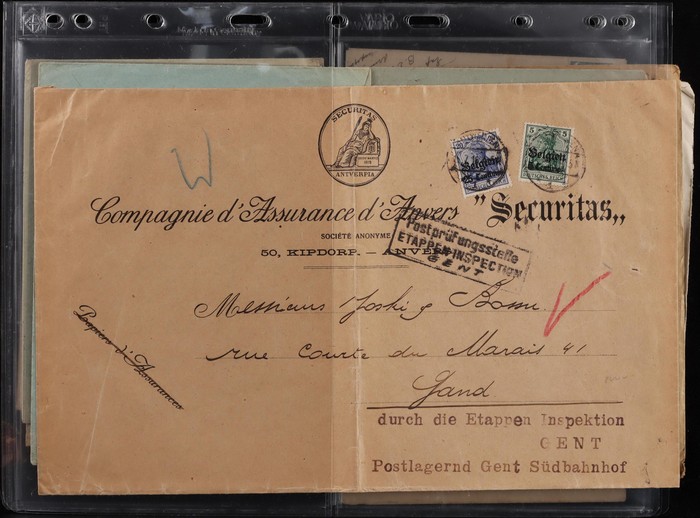 SECURITAS
ANTVERPIA
Belgien
5
Belgien
Compagnie d'Assurance d'Anvers "Securitas„
SOCIÉTÉ ANONYME
50, KIPDORP. — ANVERS
Postprüfungsstelle
ETAPPEN-INSPECTION
GENT
W
Messieurs
rue Courte du Marais 41
Gand
Papiers d'Assurances
durch die Etappen Inspektion
GENT
Postlagernd Gent Südbahnhof